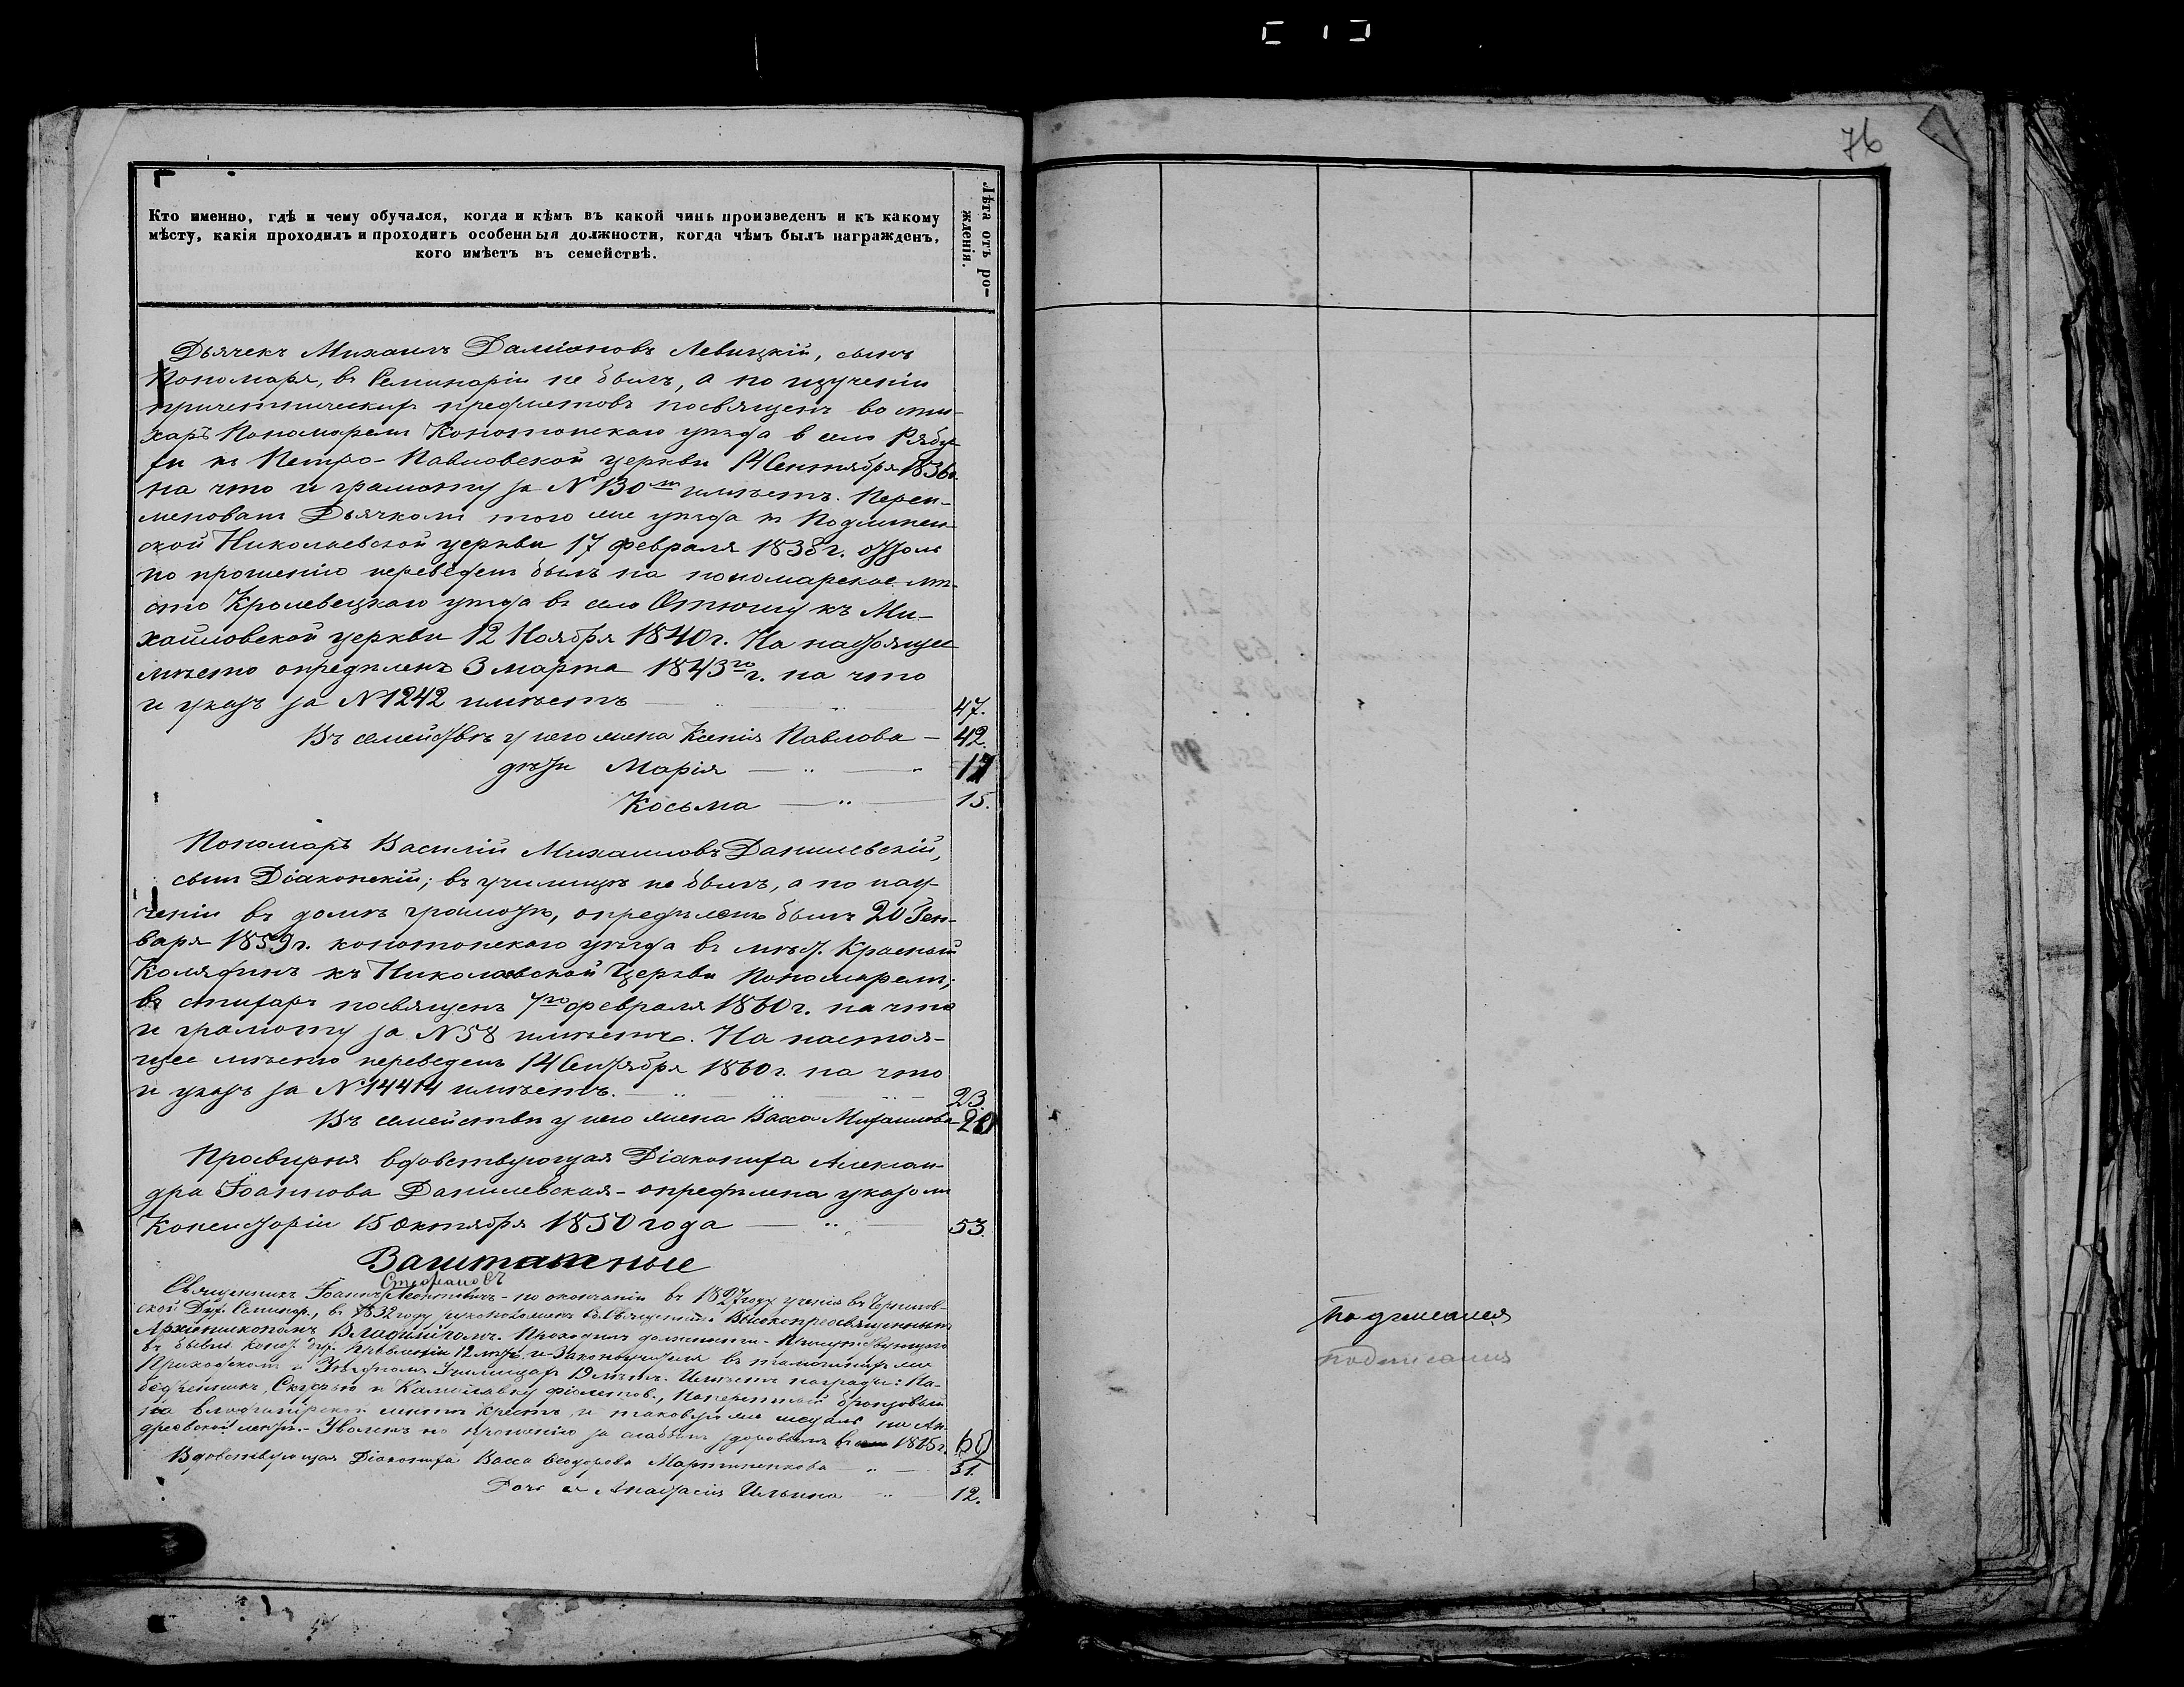 76
Кто именно, гдѣ и чему обучался, когда и кѣмъ въ какой чинъ произведенъ и къ какому
мѣсту, какія проходилъ и проходитъ особенныя должности, когда чѣмъ былъ награжденъ,
кого имѣетъ въ семействѣ.
Лѣта отъ ро-
жденія.
Дьячекъ Михаилъ Даміановъ Левицкій, сынъ
Пономаря, въ Семинаріи не былъ, а по изученіи
причетническихъ предметовъ посвященъ во сти-
харь Пономаремъ Конотопскаго уѣзда в село Рябу-
хи къ Петро-Павловской церкви 14 Сентября 1836г.
на что и грамоту за N 130м имѣетъ. Переи-
менованъ Дьячкомъ того же уѣзда къ Подлипен-
ской Николаевской церкви 17 февраля 1838 г. оттоль
по прошенію переведенъ былъ на пономарское мѣ-
сто Кролевецкаго уѣзда въ село Отюшу къ Ми-
хайловской церкви 12 Ноября 1840 г. На настоящее
мѣсто опредѣленъ 3 марта 1843го г. на что
и указъ за N 1242 имѣетъ 47.
Въ семействѣ у него жена Ксенія Павлова 42.
дѣти Марія 17
Косьма 15.
Пономарь Василій Михаиловъ Данилевскій,
сынъ Діаконскій; въ училищѣ не былъ, а по нау-
ченіи въ домѣ грамотѣ, опредѣленъ былъ 20 Ген-
варя 1859 г. конотопскаго уѣзда въ мѣст. Красный
Колядинъ къ Николаевской Церкви Пономаремъ;
въ стихарь посвященъ 7го февраля 1860 г. на что
и грамоту за N 58 имѣетъ. На настоя-
щее мѣсто переведенъ 14 Сентября 1860 г. на что
и указъ за N 14414 имѣетъ. 23.
Въ семействѣ у него жена Васса Михаилова 20
Просвирня вдовствующая Діаконица Алексан-
дра Іоаннова Данилевская - опредѣлена указомъ
Консисторіи 15 Октября 1850 года 53.
Заштатные
Стефановъ
Священникъ Іоаннъ Леонтовичъ - по окончаніи въ 1827 году ученія въ Чернигов-
ской Дух. Семинар., въ 1832 году рукоположенъ во Священника Высокопреосвященнымъ
Архіепископомъ Владиміромъ. Проходилъ должности - Присутствующаго
въ бывш. Коно. дух. Правленіи 12 лѣтъ и Законоучителя въ тамошнихъ же
Приходскомъ и Уѣздномъ Училищахъ 19 лѣтъ. Имѣетъ награды: На-
бедренникъ, Скуфью и Камилавку фіолетов., Наперстный бронзовый
на владимірской лентѣ крестъ, и таковую же медаль на Ан-
дреевской лентѣ. - Уволенъ по прошенію за слабымъ здоровьемъ в 1865 г. 60
Вдовствующая Діаконица Васса Ѳеодорова Мартиненкова 31.
Дочь ея Анастасія Ильина 12.
подписался
подписался